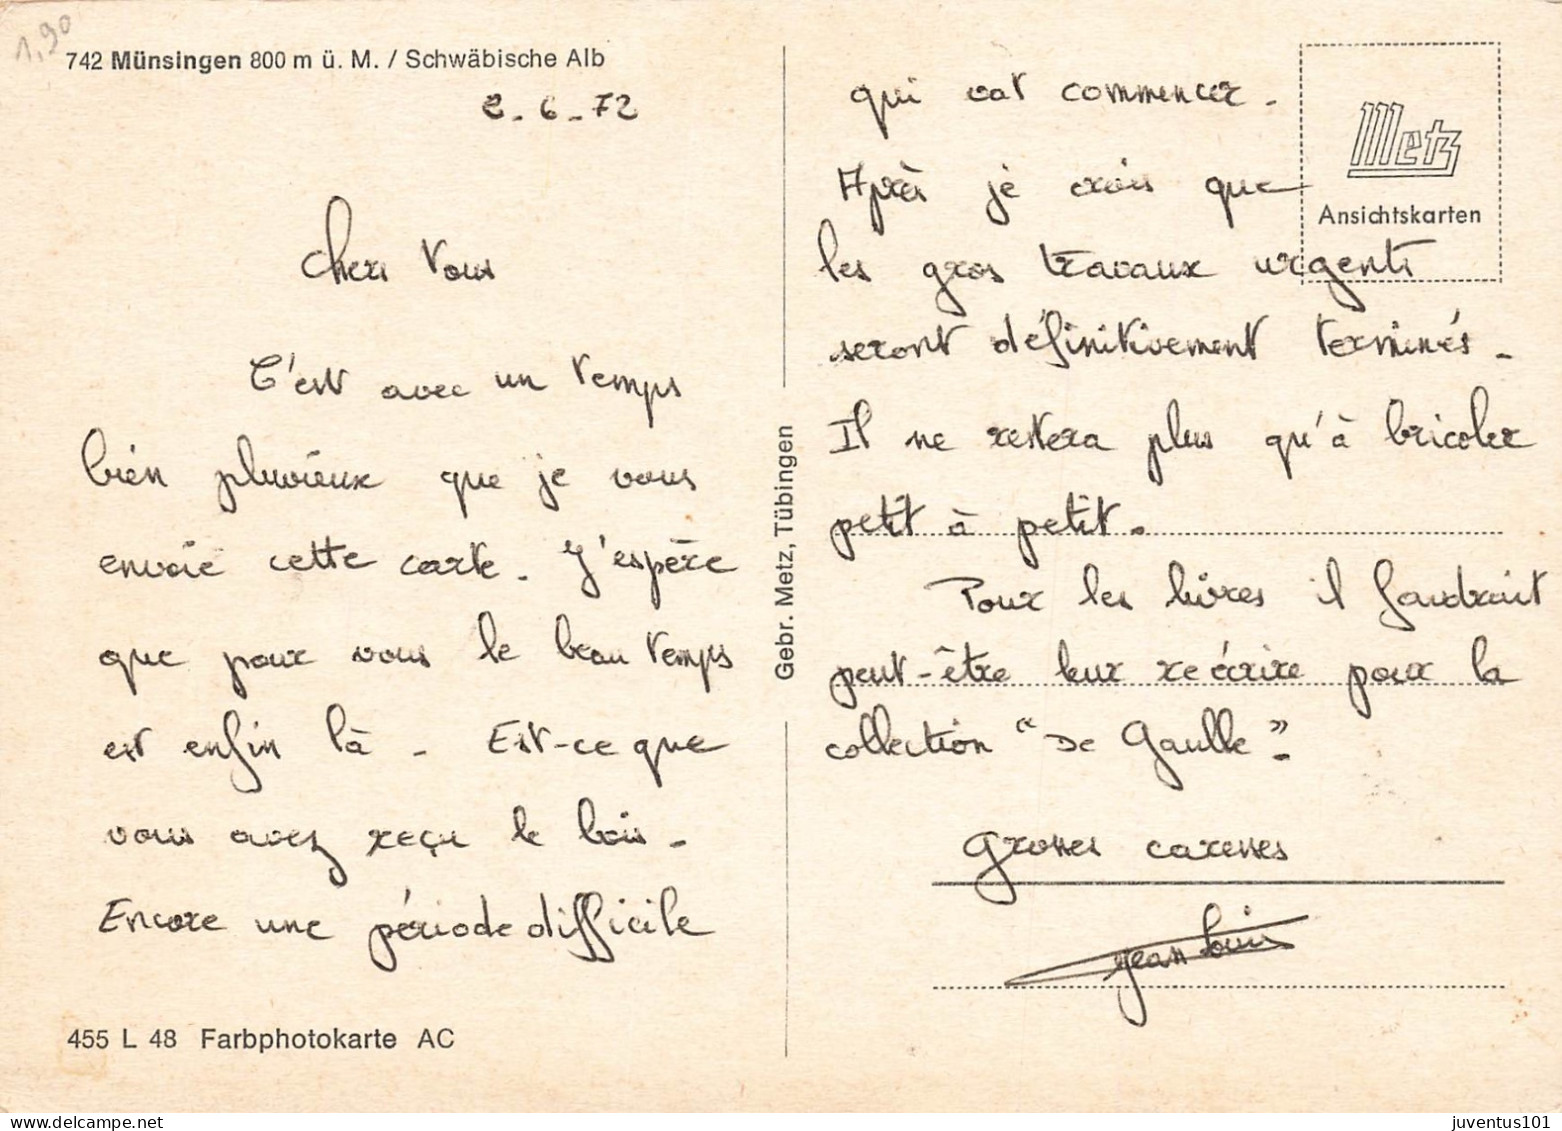 1,90
742 Münsingen 800 m ü. M. / Schwäbische Alb
2-6-72
Chers Vous
C'est avec un temps
bien pluvieux que je vous
envoie cette carte. J'espère
que pour vous le beau temps
est enfin là - Est-ce que
vous avez reçu le bois -
Encore une période difficile
455 L 48 Farbphotokarte AC
Gebr. Metz, Tübingen
Metz
Ansichtskarten
qui vat commencer -
Après je crois que
les gros travaux urgents
seront définitivement terminés -
Il ne restera plus qu'à bricoler
petit à petit.
Pour les livres il faudrait
peut-être leur reécrire pour la
collection "De Gaulle" -
Grosses caresses
Jean Louis
juventus101